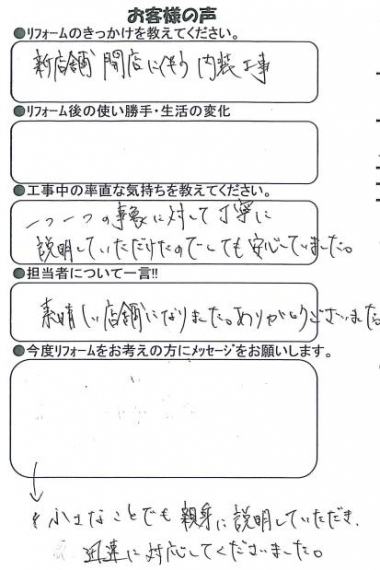 お客様の声
●リフォームのきっかけを教えてください。
新店舗 開店に伴う 内装工事
●リフォーム後の使い勝手・生活の変化
●工事中の率直な気持ちを教えてください。
一つ一つの事象に対して丁寧に
説明していただけたのでとても安心していました。
●担当者について一言!!
素晴しい店舗になりました。ありがとうございました。
●今度リフォームをお考えの方にメッセージをお願いします。
小さなことでも親身に説明していただき、
迅速に対応してくださいました。